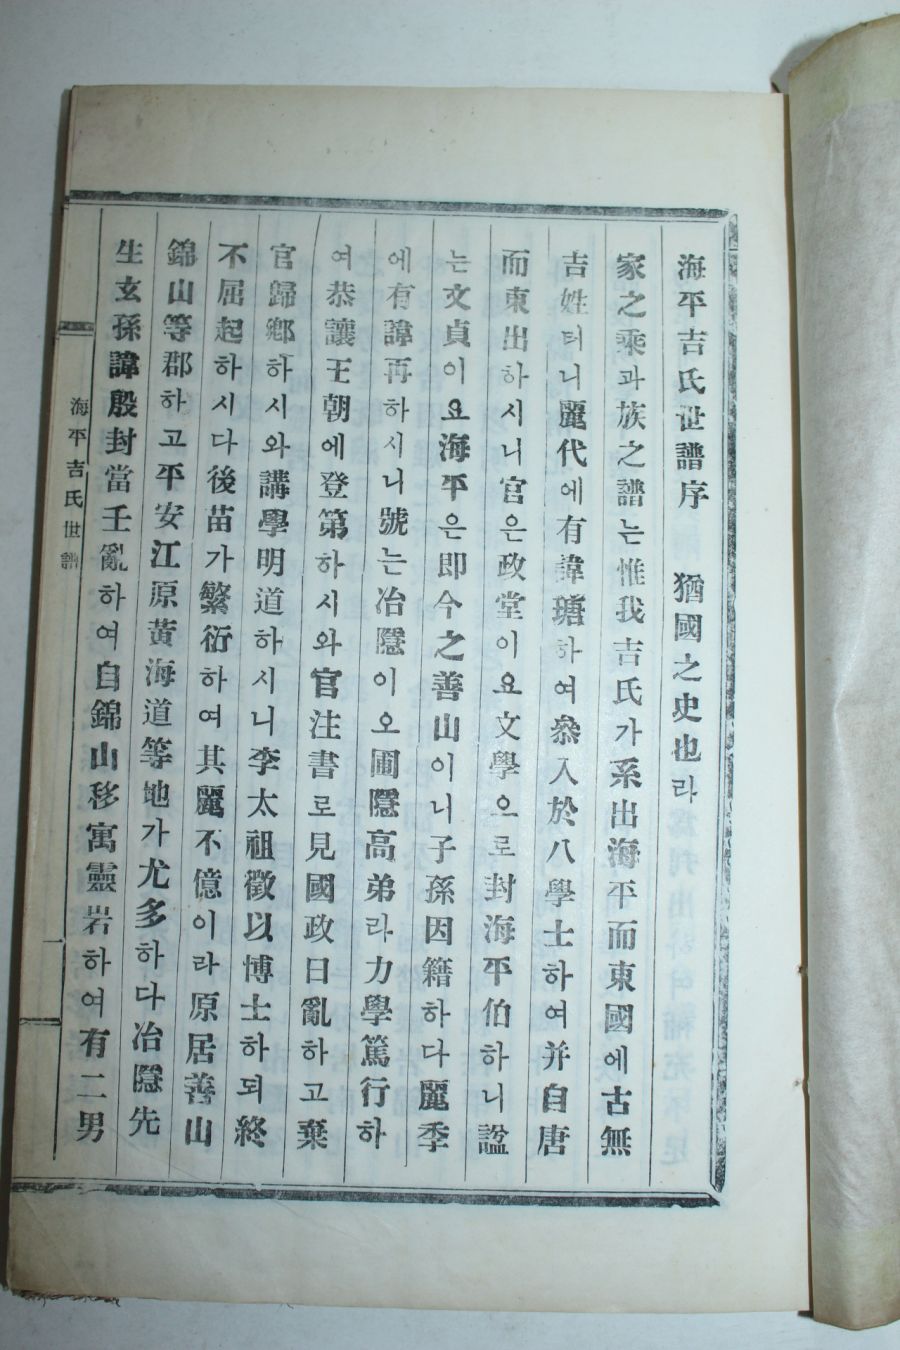 海平吉氏世譜序 猶國之史也라
家之乘과族之譜는惟我吉氏가系出海平而東國에古無
吉姓터니麗代에有諱瑭하여叅入於八學士하여并自唐
而東出하시니官은政堂이요文學으로封海平伯하니諡
는文貞이요海平은即今之善山이니子孫因籍하다麗季
에有諱再하시니號는冶隱이오圃隱高弟라力學篤行하
여恭讓王朝에登第하시와官注書로見國政日亂하고棄
官歸鄉하시와講學明道하시니李太祖徵以博士하되終
不屈起하시다後苗가繁衍하여其麗不億이라原居善山
錦山等郡하고平安江原黃海道等地가尤多하다冶隱先
生玄孫諱殷封當壬亂하여自錦山移寓靈岩하여有二男
海平吉氏世譜
一